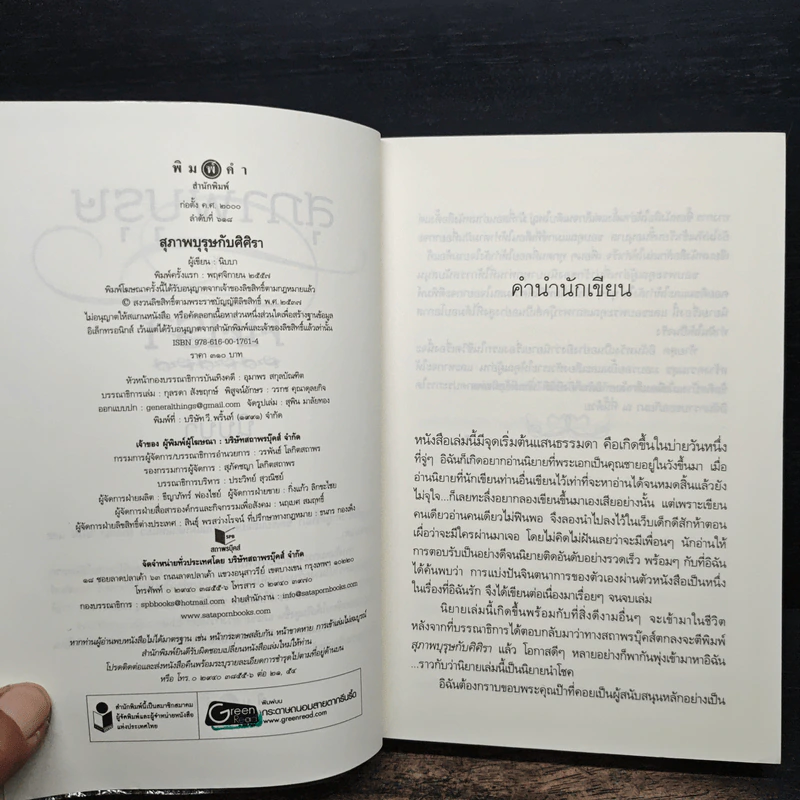 พิมพ์คำ
สำนักพิมพ์
ก่อตั้ง ค.ศ. ๒๐๐๐
ลำดับที่ ๖๑๘
สุภาพบุรุษกับศิศิรา
ผู้เขียน : นิบบา
พิมพ์ครั้งแรก : พฤศจิกายน ๒๕๕๗
พิมพ์โฆษณาครั้งนี้ได้รับอนุญาตจากเจ้าของลิขสิทธิ์ตามกฎหมายแล้ว
© สงวนลิขสิทธิ์ตามพระราชบัญญัติลิขสิทธิ์ พ.ศ. ๒๕๓๗
ไม่อนุญาตให้สแกนหนังสือ หรือคัดลอกเนื้อหาส่วนหนึ่งส่วนใดเพื่อสร้างฐานข้อมูล
อิเล็กทรอนิกส์ เว้นแต่ได้รับอนุญาตจากสำนักพิมพ์และเจ้าของลิขสิทธิ์แล้วเท่านั้น
ISBN 978-616-00-1761-4
ราคา ๓๑๐ บาท
หัวหน้ากองบรรณาธิการบันเทิงคดี : อุมาพร สกุลบัณฑิต
บรรณาธิการเล่ม : กุลรตา สังขฤกษ์ พิสูจน์อักษร : วรกช คุณาดุลยกิจ
ออกแบบปก : generalthings@gmail.com จัดรูปเล่ม : สุพิน มาลัยทอง
พิมพ์ที่ : บริษัท วี. พริ้นท์ (๑๙๙๑) จำกัด
เจ้าของ ผู้พิมพ์ผู้โฆษณา : บริษัทสถาพรบุ๊คส์ จำกัด
กรรมการผู้จัดการ/บรรณาธิการอำนวยการ : วรพันธ์ โลกิตสถาพร
รองกรรมการผู้จัดการ : สุภัคชญา โลกิตสถาพร
บรรณาธิการบริหาร : ประวิทย์ สุวณิชย์
ผู้จัดการฝ่ายผลิต : ธีญาภัทร์ ฟองไชย์ ผู้จัดการฝ่ายขาย : กิ่งแก้ว ลีกชะไชย
ผู้จัดการฝ่ายสื่อสารองค์กรและกิจกรรมเพื่อสังคม : นฤเบศ สมฤทธิ์
ผู้จัดการฝ่ายลิขสิทธิ์ต่างประเทศ : สินธุ์ พรสว่างโรจน์ ที่ปรึกษาทางกฎหมาย : ธนากร กองตั้ง
SPB
สถาพรบุ๊คส์
จัดจำหน่ายทั่วประเทศโดย บริษัทสถาพรบุ๊คส์ จำกัด
๑๘ ซอยลาดปลาเค้า ๖๓ ถนนลาดปลาเค้า แขวงอนุสาวรีย์ เขตบางเขน กรุงเทพฯ ๑๐๒๒๐
โทรศัพท์ ๐ ๒๙๔๐ ๓๘๕๕-๖ โทรสาร ๐ ๒๙๔๐ ๓๙๗๐
กองบรรณาธิการ : spbbooks@hotmail.com ฝ่ายสำนักงาน : info@satapornbooks.com
www.satapornbooks.com
หากท่านผู้อ่านพบหนังสือไม่ได้มาตรฐาน เช่น หน้ากระดาษสลับกัน หน้าขาดหาย การเข้าเล่มไม่สมบูรณ์
สำนักพิมพ์ยินดีรับผิดชอบเปลี่ยนหนังสือเล่มใหม่ให้ท่าน
โปรดติดต่อและส่งหนังสือคืนพร้อมระบุรายละเอียดการชำรุดไปตามที่อยู่ด้านบน
หรือ โทร. ๐ ๒๙๔๐ ๓๘๕๕-๖ ต่อ ๒๑, ๕๙
สำนักพิมพ์นี้เป็นสมาชิกสมาคม
ผู้จัดพิมพ์และผู้จำหน่ายหนังสือ
แห่งประเทศไทย
Green Read
พิมพ์บน
กระดาษถนอมสายตากรีนรี้ด
www.greenread.com
คำนำนักเขียน
หนังสือเล่มนี้มีจุดเริ่มต้นแสนธรรมดา คือเกิดขึ้นในบ่ายวันหนึ่ง
ที่จู่ๆ อิฉันก็เกิดอยากอ่านนิยายที่พระเอกเป็นคุณชายอยู่ในวังขึ้นมา เมื่อ
อ่านนิยายที่นักเขียนท่านอื่นเขียนไว้เท่าที่จะหาอ่านได้จนหมดสิ้นแล้วยัง
ไม่จุใจ...ก็เลยทะลึ่งอยากลองเขียนขึ้นมาเองเสียอย่างนั้น แต่เพราะเขียน
คนเดียวอ่านคนเดียวไม่ฟินพอ จึงลองนำไปลงไว้ในเว็บเด็กดีสักห้าตอน
เผื่อว่าจะมีใครผ่านมาเจอ โดยไม่คิดไม่ฝันเลยว่าจะมีเพื่อนๆ นักอ่านให้
การตอบรับเป็นอย่างดีจนนิยายติดอันดับอย่างรวดเร็ว พร้อมๆ กับที่อิฉัน
ได้ค้นพบว่า การแบ่งปันจินตนาการของตัวเองผ่านตัวหนังสือเป็นหนึ่ง
ในเรื่องที่อิฉันรัก จึงได้เขียนต่อเนื่องมาเรื่อยๆ จนจบเล่ม
นิยายเล่มนี้เกิดขึ้นพร้อมกับที่สิ่งดีงามอื่นๆ จะเข้ามาในชีวิต
หลังจากที่บรรณาธิการได้ตอบกลับมาว่าทางสถาพรบุ๊คส์ตกลงจะตีพิมพ์
สุภาพบุรุษกับศิศิรา แล้ว โอกาสดีๆ หลายอย่างก็พากันพุ่งเข้ามาหาอิฉัน
...ราวกับว่านิยายเล่มนี้เป็นนิยายนำโชค
อิฉันต้องกราบขอบพระคุณป๊าที่คอยเป็นผู้สนับสนุนหลักอย่างเป็น